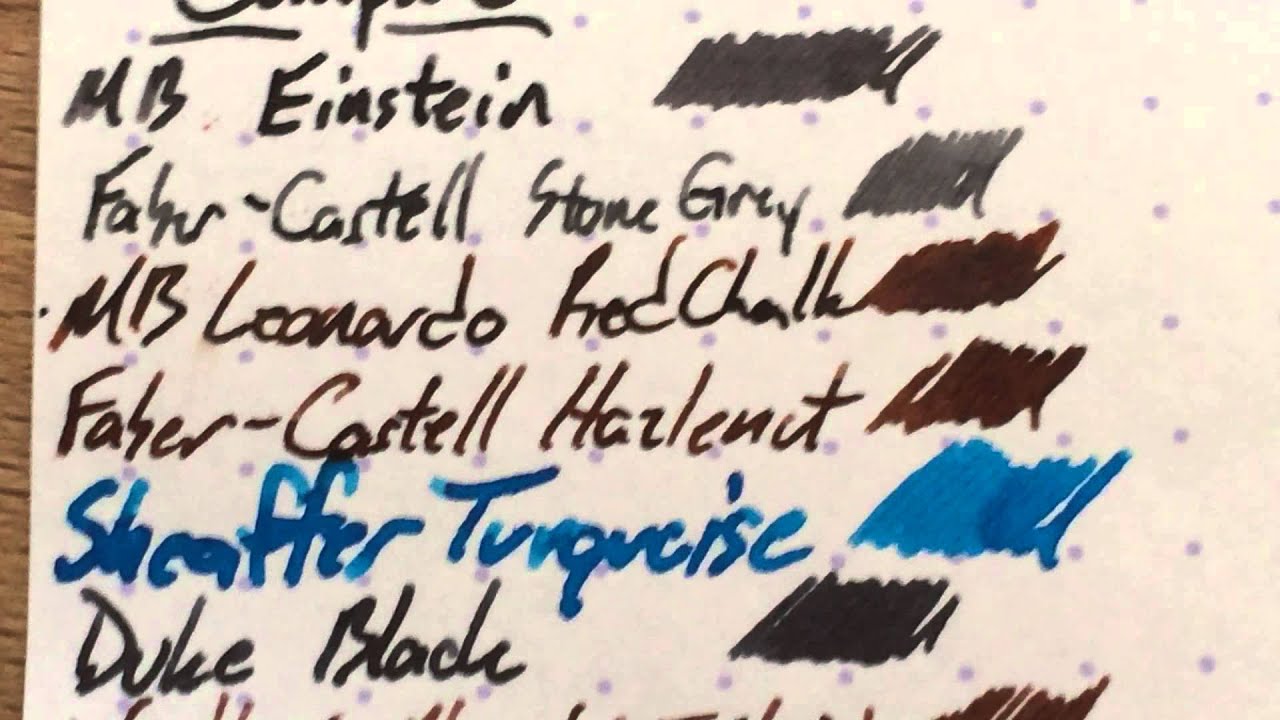 MB Einstein
Faber-Castell Stone Grey
MB Leonardo Red Chalk
Faber-Castell Hazlenut
Sheaffer Turquoise
Duke Black